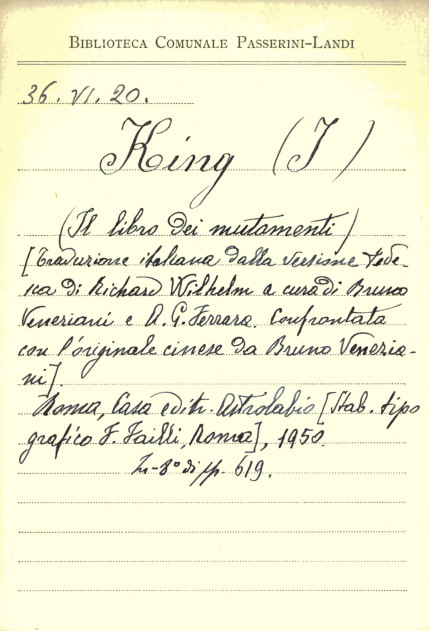 BIBLIOTECA COMUNALE PASSERINI-LANDI
36. VI. 20.
King (I)
(Il libro dei mutamenti)
[Traduzione italiana dalla versione tede-
sca di Richard Wilhelm a cura di Bruno
Veneziani e A. G. Ferrara. Confrontata
con l'originale cinese da Bruno Venezia-
ni].
Roma, Casa editr. Astrolabio [Stab. tipo
grafico F. Failli, Roma], 1950.
In-8° di pp. 619.